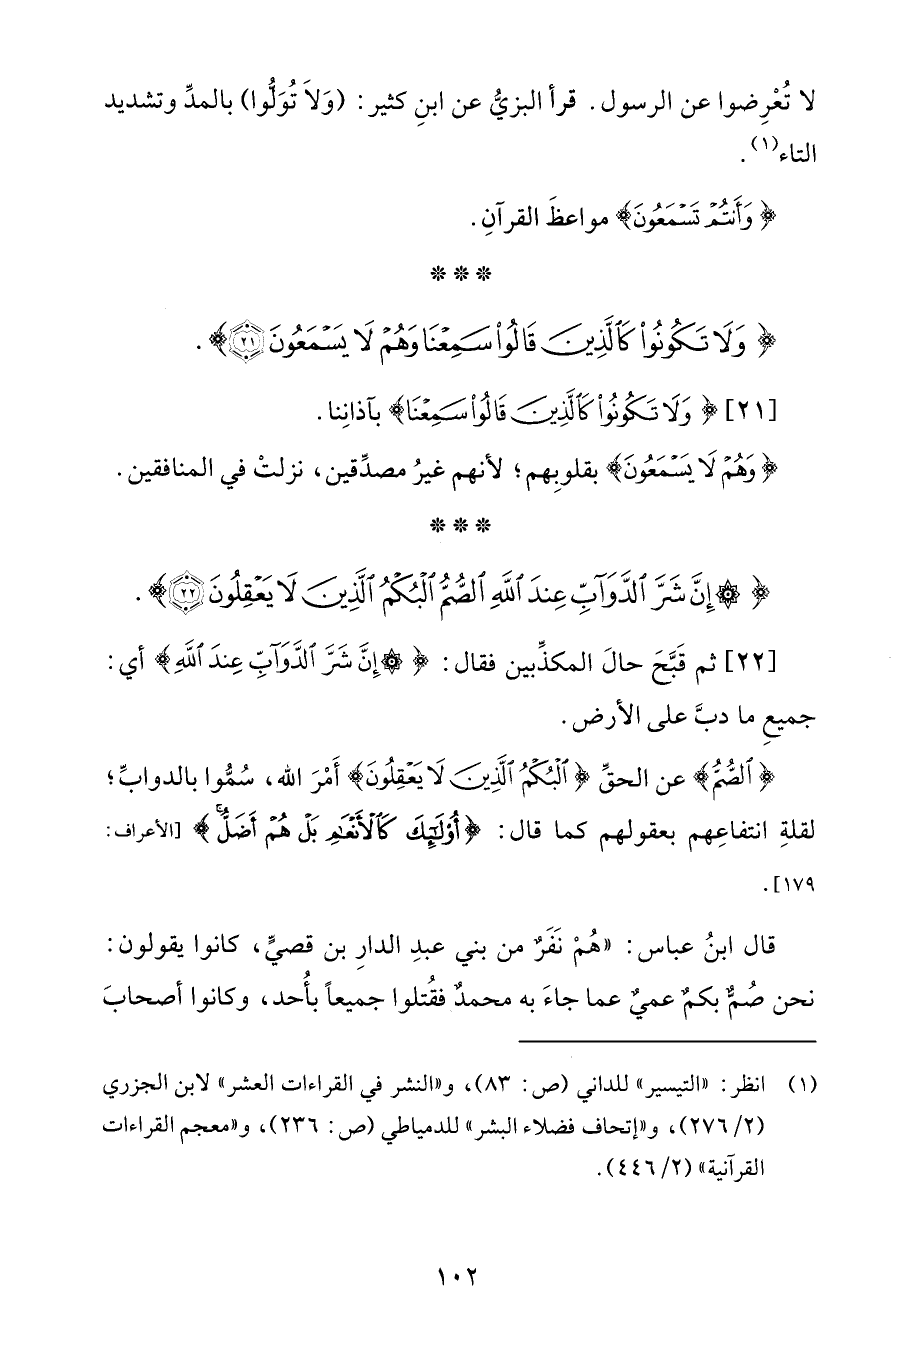 لا تُعْرِضوا عن الرسول. قرأ البزيُّ عن ابنِ كثير: (وَلاَ تُوَلُّوا) بالمدِّ وتشديد
التاء(١).
﴿وَأَنتُمْ تَسْمَعُونَ﴾ مواعظَ القرآنِ.
* * *
﴿وَلَا تَكُونُوا۟ كَٱلَّذِينَ قَالُوا۟ سَمِعْنَا وَهُمْ لَا يَسْمَعُونَ ٢١﴾.
[٢١] ﴿وَلَا تَكُونُوا۟ كَٱلَّذِينَ قَالُوا۟ سَمِعْنَا﴾ بآذانِنا.
﴿وَهُمْ لَا يَسْمَعُونَ﴾ بقلوبِهم؛ لأنهم غيرُ مصدِّقين، نزلتْ في المنافقين.
* * *
﴿۞ إِنَّ شَرَّ ٱلدَّوَآبِّ عِندَ ٱللَّهِ ٱلصُّمُّ ٱلْبُكْمُ ٱلَّذِينَ لَا يَعْقِلُونَ ٢٢﴾.
[٢٢] ثم قَبَّحَ حالَ المكذِّبين فقال: ﴿۞ إِنَّ شَرَّ ٱلدَّوَآبِّ عِندَ ٱللَّهِ﴾ أي:
جميعِ ما دبَّ على الأرض.
﴿ٱلصُّمُّ﴾ عن الحقِّ ﴿ٱلْبُكْمُ ٱلَّذِينَ لَا يَعْقِلُونَ﴾ أَمْرَ الله، سُمُّوا بالدوابِّ؛
لقلةِ انتفاعِهم بعقولهم كما قال: ﴿أُو۟لَـٰٓئِكَ كَٱلْأَنْعَـٰمِ بَلْ هُمْ أَضَلُّ ۚ﴾ [الأعراف:
١٧٩].
قال ابنُ عباس: «هُمْ نَفَرٌ من بني عبدِ الدارِ بن قصيٍّ، كانوا يقولون:
نحن صُمٌّ بكمٌ عميٌ عما جاءَ به محمدٌ فقُتلوا جميعاً بأُحد، وكانوا أصحابَ
(١) انظر: «التيسير» للداني (ص: ٨٣)، و«النشر في القراءات العشر» لابن الجزري
(٢/ ٢٧٦)، و«إتحاف فضلاء البشر» للدمياطي (ص: ٢٣٦)، و«معجم القراءات
القرآنية» (٢/ ٤٤٦).
١٠٢